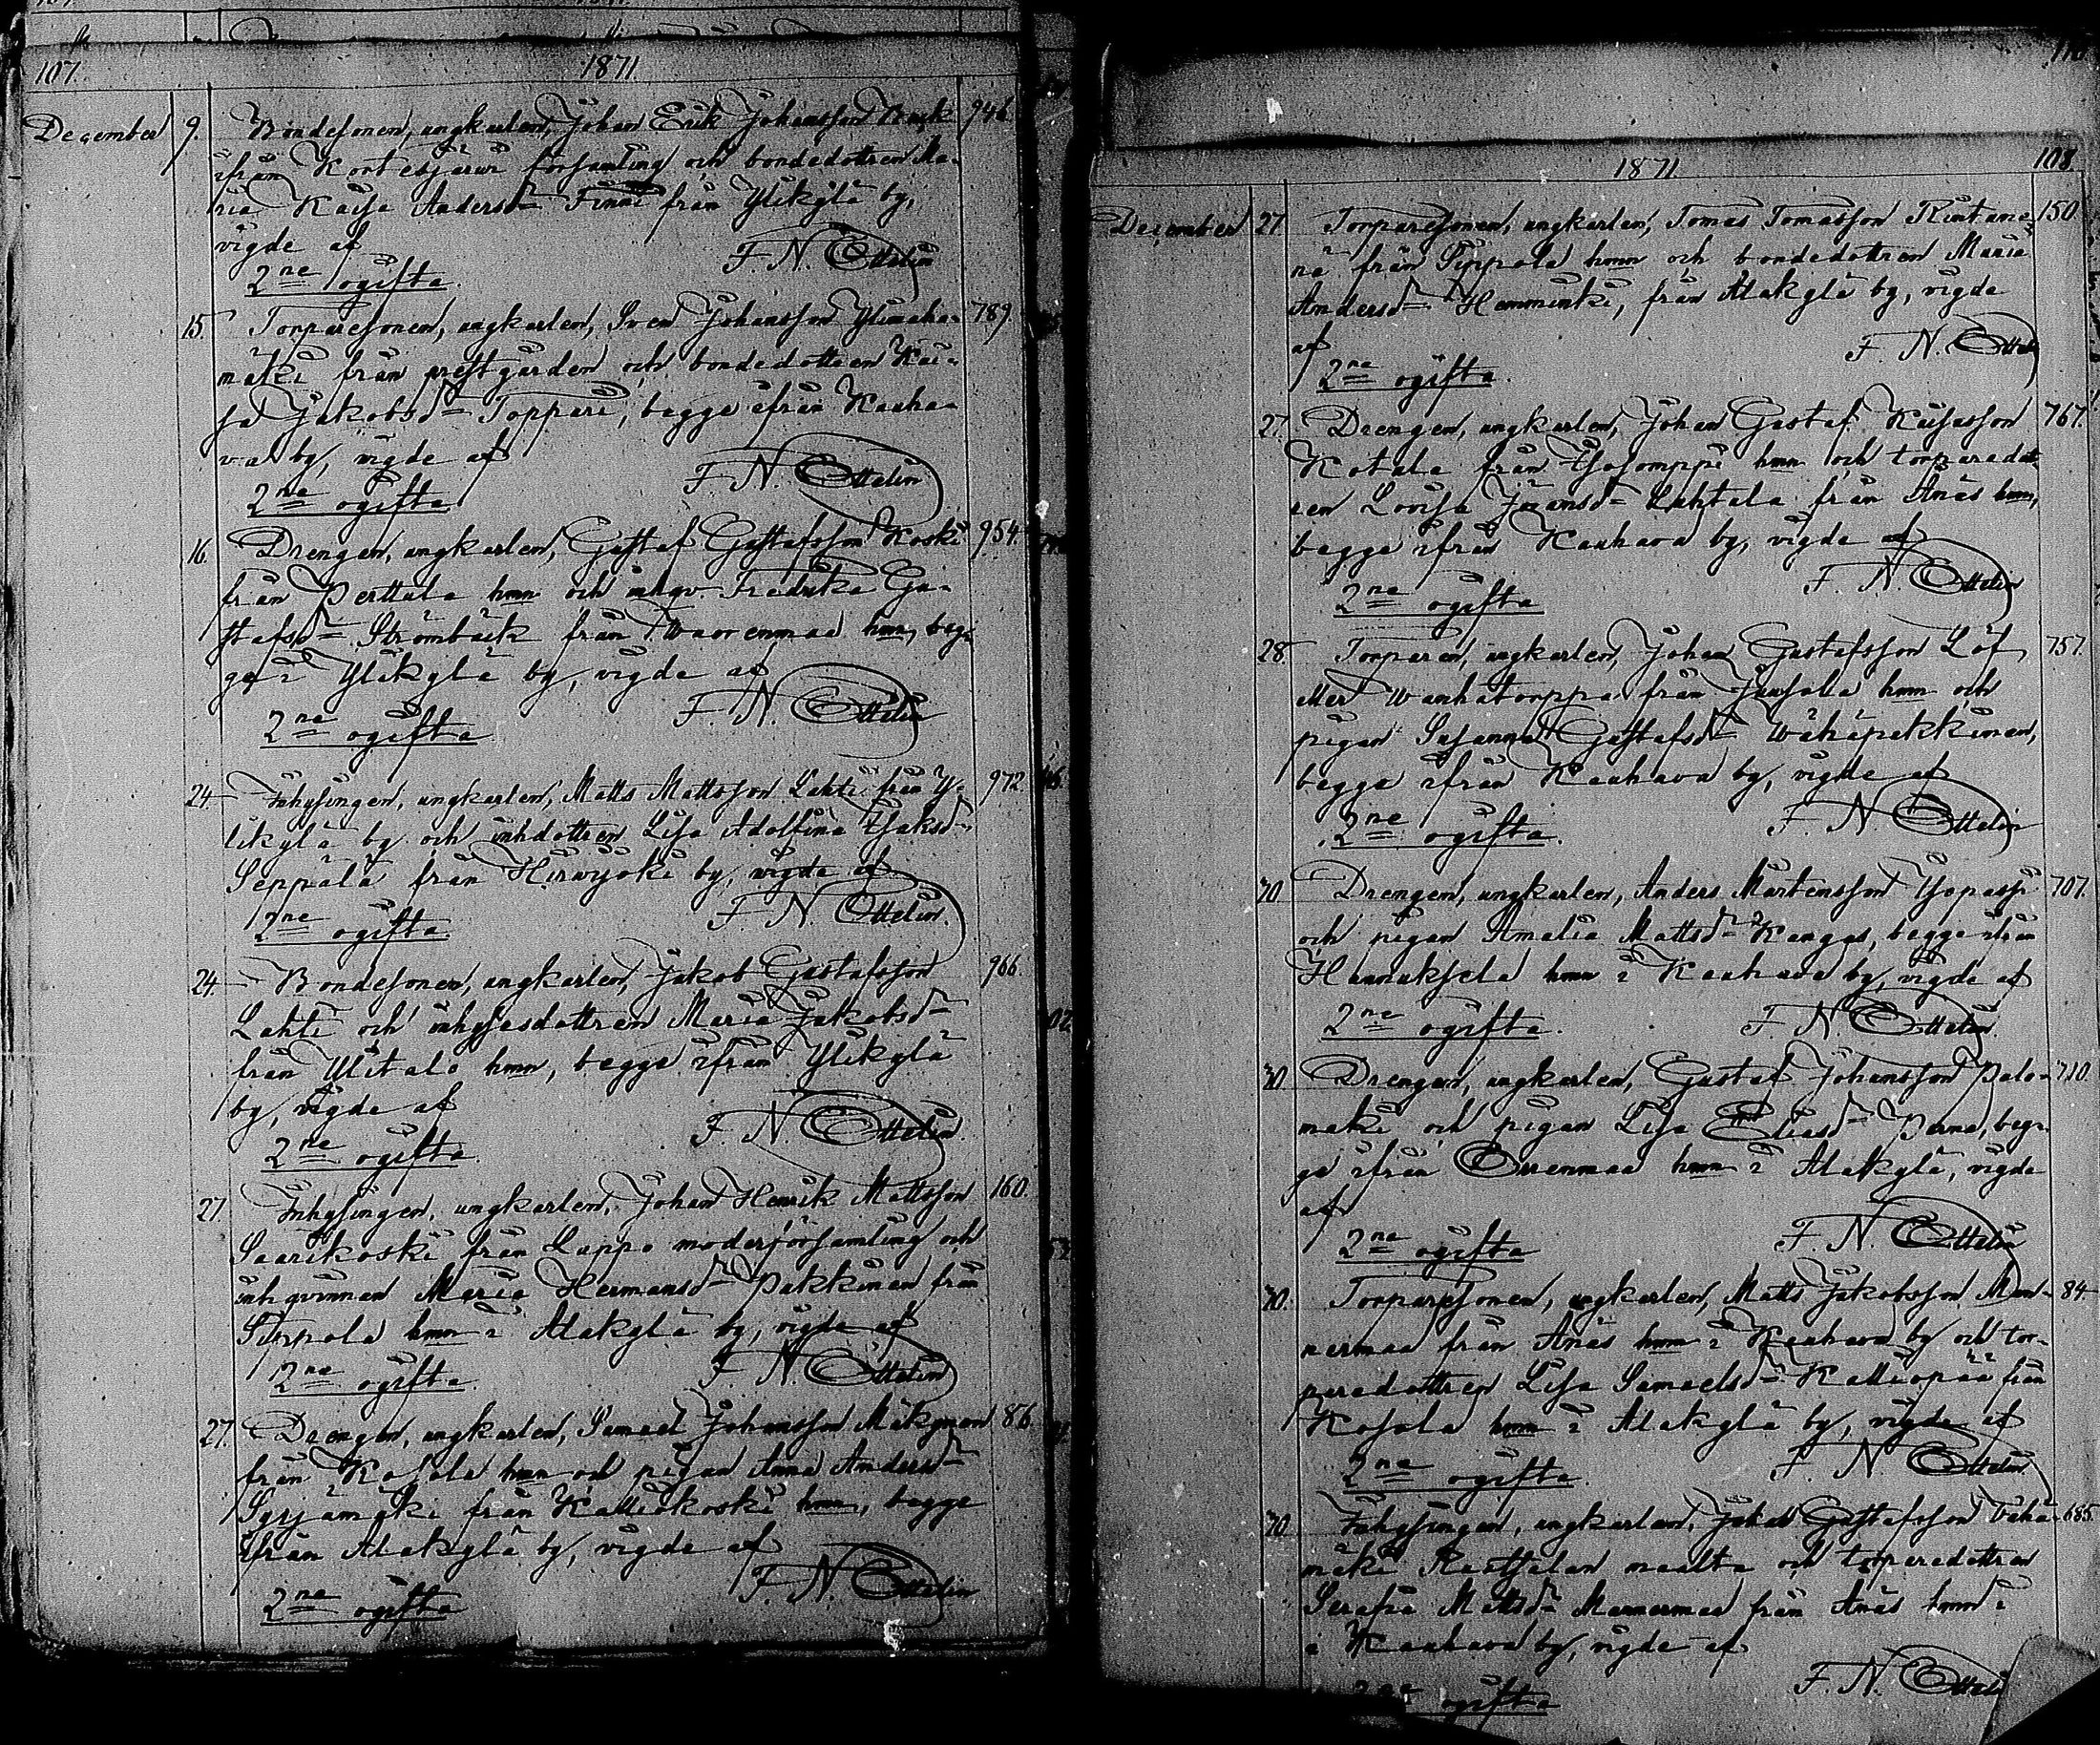 107.
1871
December 9. Bondesonen, ungkarlen, Johan Erik Johansson 946
ifrån Kortesjärvi församling och bondedottren Ma-
ria Kaisa Andersd= Finni från Ylikylä by,
vigde af
F. N. Ottelin
2ne ogifta.
15. Torparesonen, ungkarlen, Sven Johansson Ylimaha- 789.
mäki från prestgården och bondedottren Kai-
sa Jakobsd= Toppari, begge ifrån Kauha-
va by, vigde af
F. N. Ottelin
2ne ogifta
16. Drengen, ungkarlen, Gustaf Gustafsson Koski 954.
från Perttula hmn och inhqv. Fredrika Gu-
stafsd= Strömbäck från Waorenmaa hmn, beg-
ge i Ylikylä by, vigde af
F. N. Ottelin
2ne ogifta
24. Inhysingen, ungkarlen, Matts Mattsson Lahti från Y- 972.
likylä by och inhdottren Lisa Adolfina Isaksd=
Seppälä från Hirvijoki by, vigde af
F. N. Ottelin.
2ne ogifta.
24. Bondesonen, ungkarlen, Jakob Gustafsson 966.
Lahti och inhysesdottren Maria Jakobsd=
från Ylitalo hmn, begge ifrån Ylikylä
by, vigde af
F. N. Ottelin.
2ne ogifta.
27. Inhysingen, ungkarlen, Johan Henrik Mattsson 160.
Saarikoski från Lappo moderförsamling och
inhqvinnan Maria Hermansd= Pakkinen från
Sippola hmn i Alakylä by, vigde af
F. N. Ottelin
2ne ogifta.
27. Drengen, ungkarlen, Samuel Johansson Mäkynen 86.
från Kosola hmn och pigan Anna Andersd=
Syrjämäki från Kalliokoski hmn, begge
ifrån Alakylä by, vigde af
F. N. Ottelin
2ne ogifta
1871
108.
December 27. Torparesonen, ungkarlen, Tomas Tomasson 150.
från Sippola hmn och bondedottren Maria
Andersd= Hemminki, från Alakylä by, vigde
af
F. N. Ottelin
2ne ogifta.
27. Drengen, ungkarlen, Johan Gustaf Kaisasson 767.
Kotala från Isosomppi hmn och torparedott-
ren Lovisa Johansd= Lahtala från Änäs hmn,
begge ifrån Kauhava by, vigde af
F. N. Ottelin
2ne ogifta
28. Torparen, ungkarlen, Johan Gustafsson Löf 757.
eller Wanhatorppa från Jausala hmn och
pigan Susanna Gustafsd= Wähäpakkinen,
begge ifrån Kauhava by, vigde af
F. N. Ottelin
2ne ogifta.
30. Drengen, ungkarlen, Anders Mårtensson Isopassi 707.
och pigan Amalia Mattsd= Kangas, begge ifrån
Hannuksela hmn i Kauhava by, vigde af
F. N. Ottelin
2ne ogifta.
30. Drengen, ungkarlen, Gustaf Johansson Palo- 710.
mäki och pigan Lisa Eliasd= Perna, beg-
ge ifrån Orrenmaa hmn i Alakylä, vigde
af
F. N. Ottelin
2ne ogifta
30. Torparesonen, ungkarlen, Matts Jakobsson Man- 84.
nermaa från Änäs hmn i Kauhava by och tor-
paredottren Lisa Samuelsd= Kalliopää från
Kosola hmn i Alakylä by, vigde af
F. N. Ottelin
2ne ogifta.
30. Inhysingen, ungkarlen, Jakob Gustafsson Vähä- 685.
mäki Ruotsalan maalta och torparedottren
Serafia Mattsd= Mannermaa från Änäs hmn i
i Kauhava by, vigde af
F. N. Ottelin
2ne ogifta